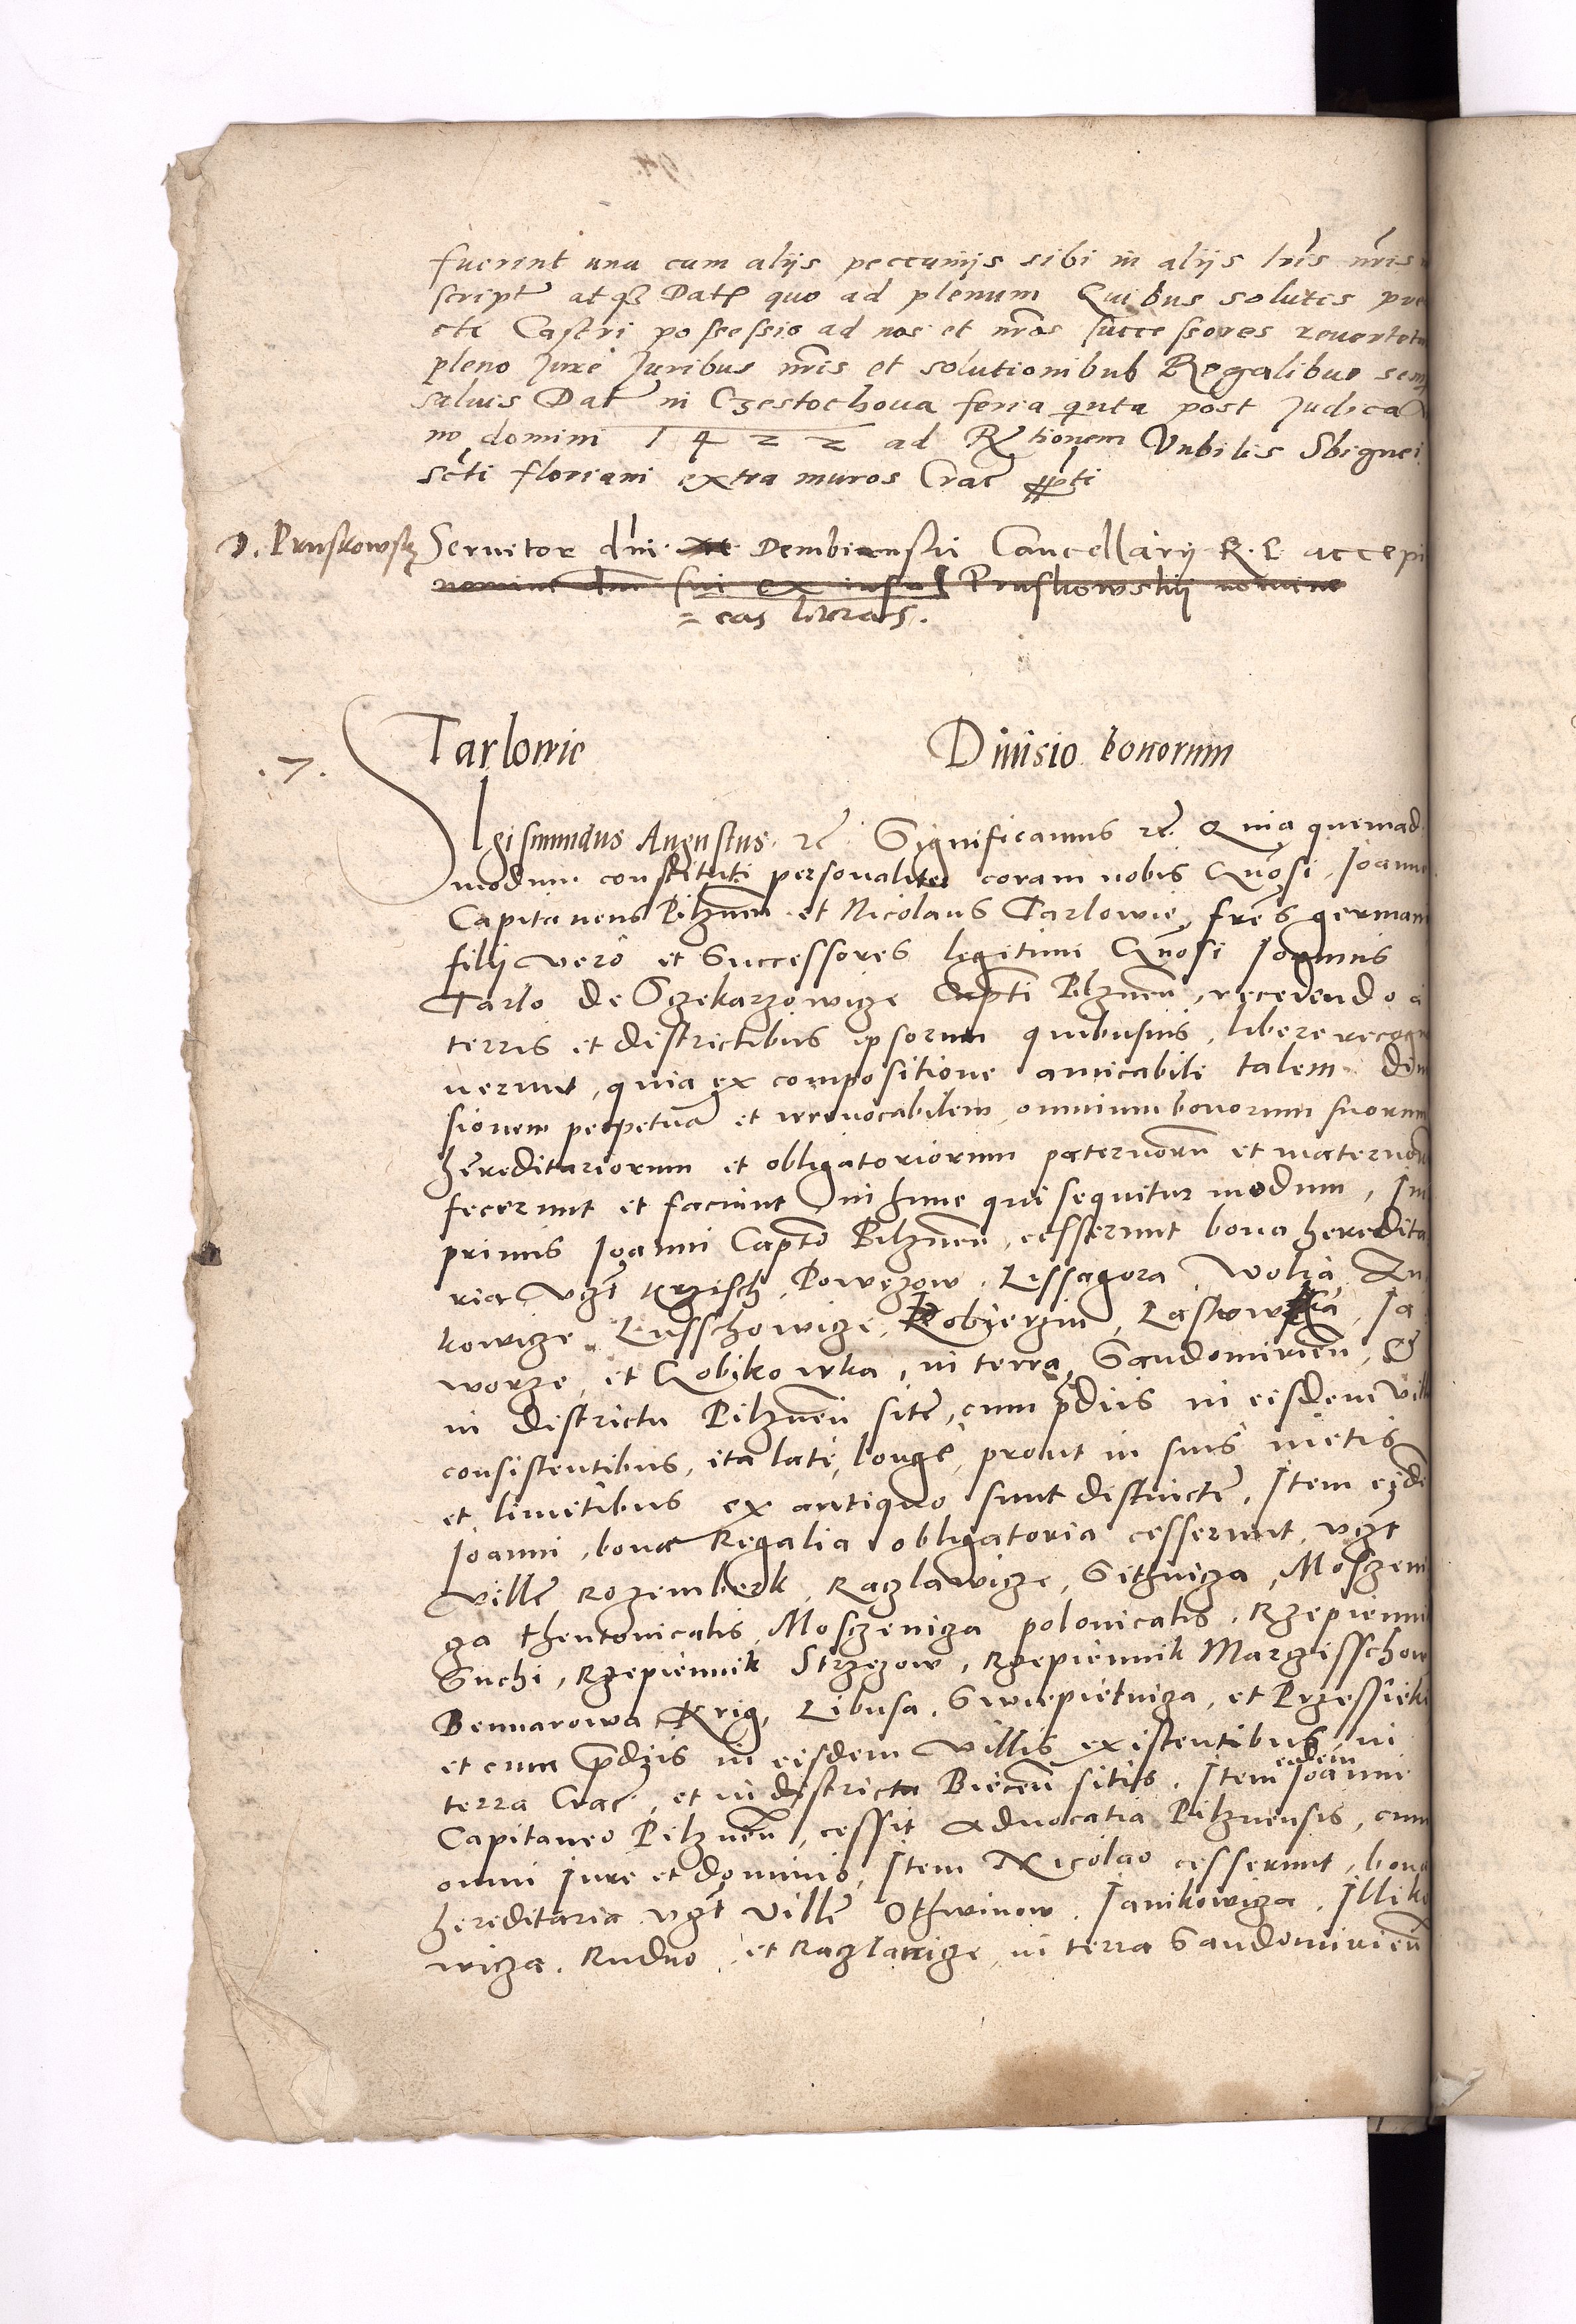 fuerint una cum alijs peccunijs sibi in alijs lris nris
script atq3 Dat quo ad plenum Quibus solutis pre
cti Castri possessio ad nos et nros successores revertetu
pleno Jure Juribus nris et solutionibus Regalibus sem
saluis Dat in Czestochoua feria qinta post Judica
no domini 1422 ad Rtionem Vnbilis Sbignei
scti floriani extra muros Crac ppti
D. Pruskowsky Seruitor dni Dembienskii Cancellarij R. P. accepi
nomine dni sui ex Pruskowskij nomine
= eas literas.
Tarlowie Diuisio bonorum
.7. Sigismundus Augustus rc Significamus rc Quia quemad
modum constituti personaliter coram nobis Gnosi Joanne
Capitaneus Pilznen et Nicolaus Tarlowie, fres german
filij vero et Successores legitimi Gnosi Joannis
Tarlo de Sczekarzowicze Capti Pilznen, recedendo a
terris et districtibus ipsorum quibusuis, libere recogn
uerunt, quia ex compositione amicabili talem diui
sionem perpetua et irreuocabilem omnium bonorum suorum
hereditariorum et obligatoriorum paternoru et maternoru
fecerunt et faciunt in hunc qui sequitur modum, Im
primis Joanni Capto Pilznen, cesserunt bona heredita
ria vgt Krzisch, Powezow, Lissagora, Wolia Lu
kowicze, Lusschowicze, Kobierzin, Laskowka, Ja
worze, et Gobikowka, in terra Sandomirien, &
in districtu Pilznen site, cum pdiis in eisdem vill
consistentibus, ita late, longe, prout in suis metis
et limitibus ex antiquo sunt distincte, Item eide
Joanni, bona Regalia obligatoria cesserunt, vgt
ville Rozemberk, Raczlawicze, Sithnicza, Mosczeni
cza theutonicalis, Mosczenicza polonicalis, Rzepienni
Suchi, Rzepiennik Strzezow, Rzepiennik Marczisschow
Bennarowa Krig, Libusa, Swiepietnicza, et Przessieki
et cum pdijs in eisdem villis existentibus, in
terra Crac, et in districtu Biecen sitis. Item eidem Joanni
Capitaneo Pilznen, cessit aduocatia Pilznensis, cum
omni iure et dominio, Item Nicolao cesserunt, bona
hereditaria vgt ville Othwinow, Janikowicza, Illiko
wicza, Rudno, et Raczlawicze, in terra Sandomirien